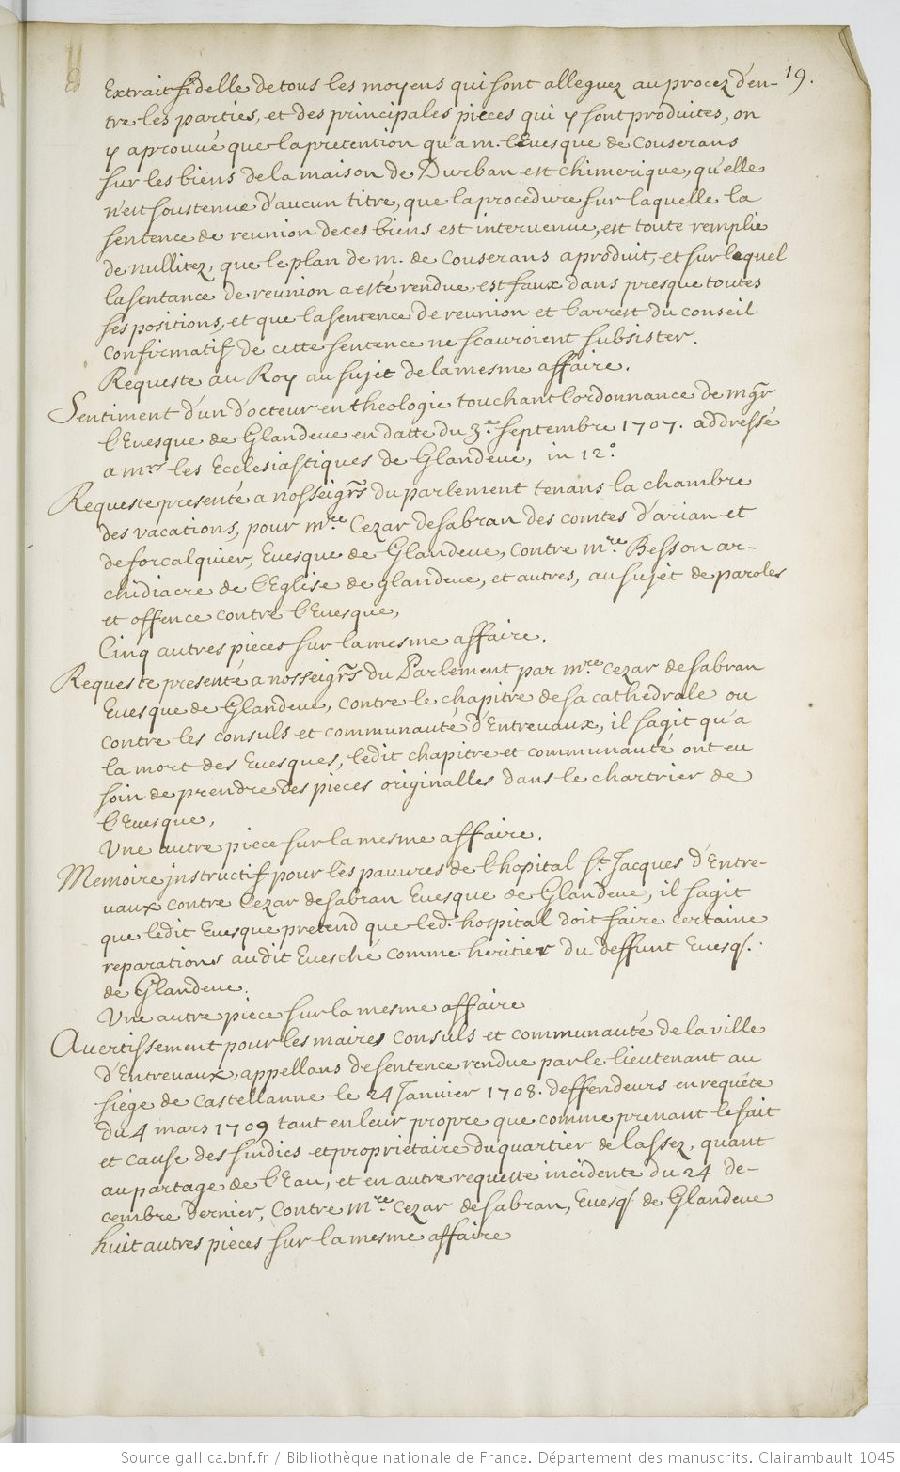 19.
Extrait fidelle de tous les moyens qui sont alleguez au procez d'en-
tre les parties, et des principales pieces qui y sont produites, on
y a prouvé que la pretention qu'a m. l'Evesque de Couserans
sur les biens de la maison de Durban est chimerique, qu'elle
n'est soustenue d'aucun titre, que la procedure sur laquelle la
sentence de reunion de ces biens est intervenue, est toute remplie
de nullitez, que le plan de m. de Couserans a produit, et sur lequel
la sentance de reunion a esté rendue, est faux dans presque toutes
ses positions, et que la sentence de reunion et l'arrest du conseil
confirmatif de cette sentence ne scauroient subsister.
Requeste au Roy au sujet de la mesme affaire.
Sentiment d'un d'octeur en theologie touchant l'ordonnance de mgr
l'Evesque de Glandeve en datte du 3.e septembre 1707. addressé
a mrs les Ecclesiastiques de Glandeve, in 12.o
Requeste presenté a nosseigrs du parlement tenans la chambre
des vacations, pour mre Cezar de sabran des comtes d'arian et
de forcalquier, Evesque de Glandeve, contre mre Besson ar-
chidiacre de l'Eglise de glandeve, et autres, au sujet de paroles
et offence contre l'Evesque,
Cinq autres pieces sur la mesme affaire.
Requeste presenté a nosseigrs du Parlement par mre cezar de sabran
Evesque de Glandeve, contre le chapitre de sa cathedrale ou
contre les consuls et communauté d'Entrevaux, il s'agit qu'a
la mort des Evesques, ledit chapitre et communauté ont eu
soin de prendre des pieces originalles dans le chartrier de
l'Evesque,
Une autre piece sur la mesme affaire.
Memoire jnstructif pour les pauvres de l'hopital St. Jacques d'Entre-
vaux contre Cezar de sabran Evesque de Glandeve, il s'agit
que ledit Evesque pretend que led. hospital doit faire certaine
reparations audit Evesché comme heritier du deffunt Evesq.
de Glandeve.
Une autre piece sur la mesme affaire
Avertissement pour les maires consuls et communauté de la ville
d'Entrevaux, appellans de sentence rendue par le lieutenant au
siége de castellanne le 24 Janvier 1708. deffendeurs en requéte
du 4 mars 1709 tant en leur propre que comme prenant le fait
et cause des sindics et proprietaire du quartier de lassez, quant
au partage de l'Eau, et en autre requeste incidente du 24 de-
cembre dernier, contre mre cezar de sabran, Evesq. de Glandeve
huit autres pieces sur la mesme affaire
Source gallica.bnf.fr / Bibliothèque nationale de France. Département des manuscrits. Clairambault 1045